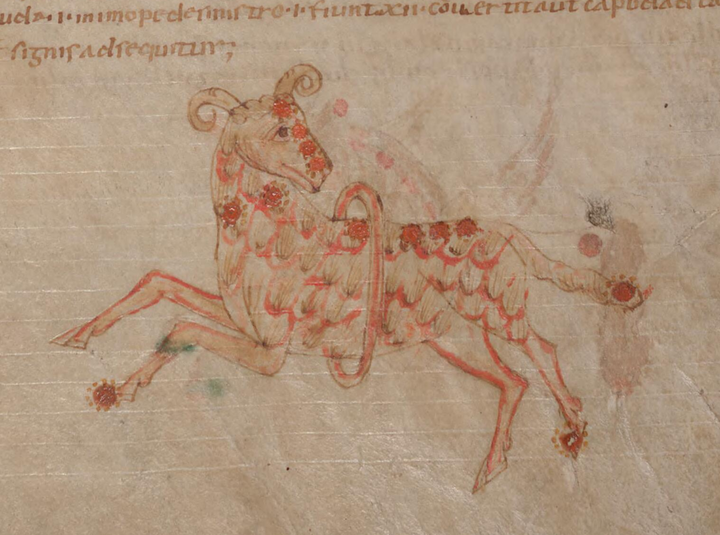 uda · i · in imo pede sinistro · i · fiunt xii · couertit aut capud ad
signis adsequitur;